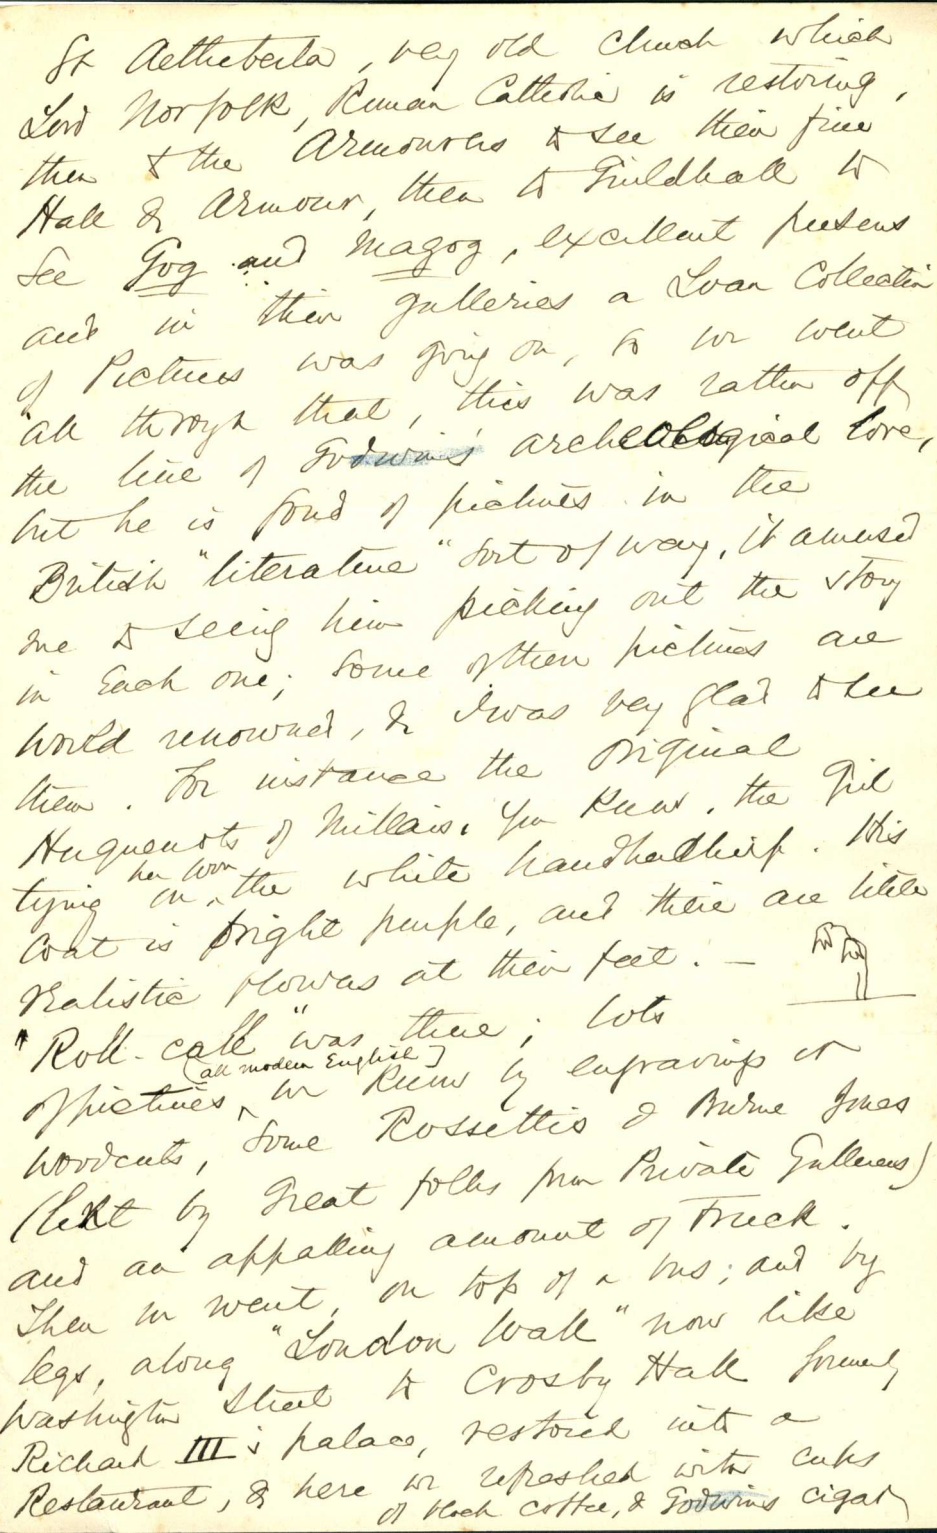 St Aethelberta, very old church which
Lord Norfolk, Roman Catholic is restoring,
then to the Armourers to see their fine
Hall & Armour, then to Guildhall to
see Gog and Magog, excellent persons
and in their galleries a Loan Collection
of Pictures was going on, so we went
all through that, this was rather off
the line of Godwin's archeological love,
but he is fond of pictures in the
British "literature" sort of way, it amused
me to seeing him picking out the story
in each one; some of them pictures are
world renowned, & I was very glad to see
them. For instance the original
Huguenots of Millais. You know, the Girl
tying on her won the white handkerchief. His
coat is bright purple, and there are little
realistic flowers at their feet. —
"Roll-call" was there; lots
of pictures (all modern English) we know by engravings or
woodcuts, some Rossettis & Burne Jones
(lent by Great folks from Private Galleries)
and an appalling amount of Truck.
Then we went, on top of a bus; and by
legs, along "London Wall" now like
Washington Street to Crosby Hall formerly
Richard III's palace, restored into a
Restaurant, & here we refreshed with cups
of black coffee, & Godwin's cigar,